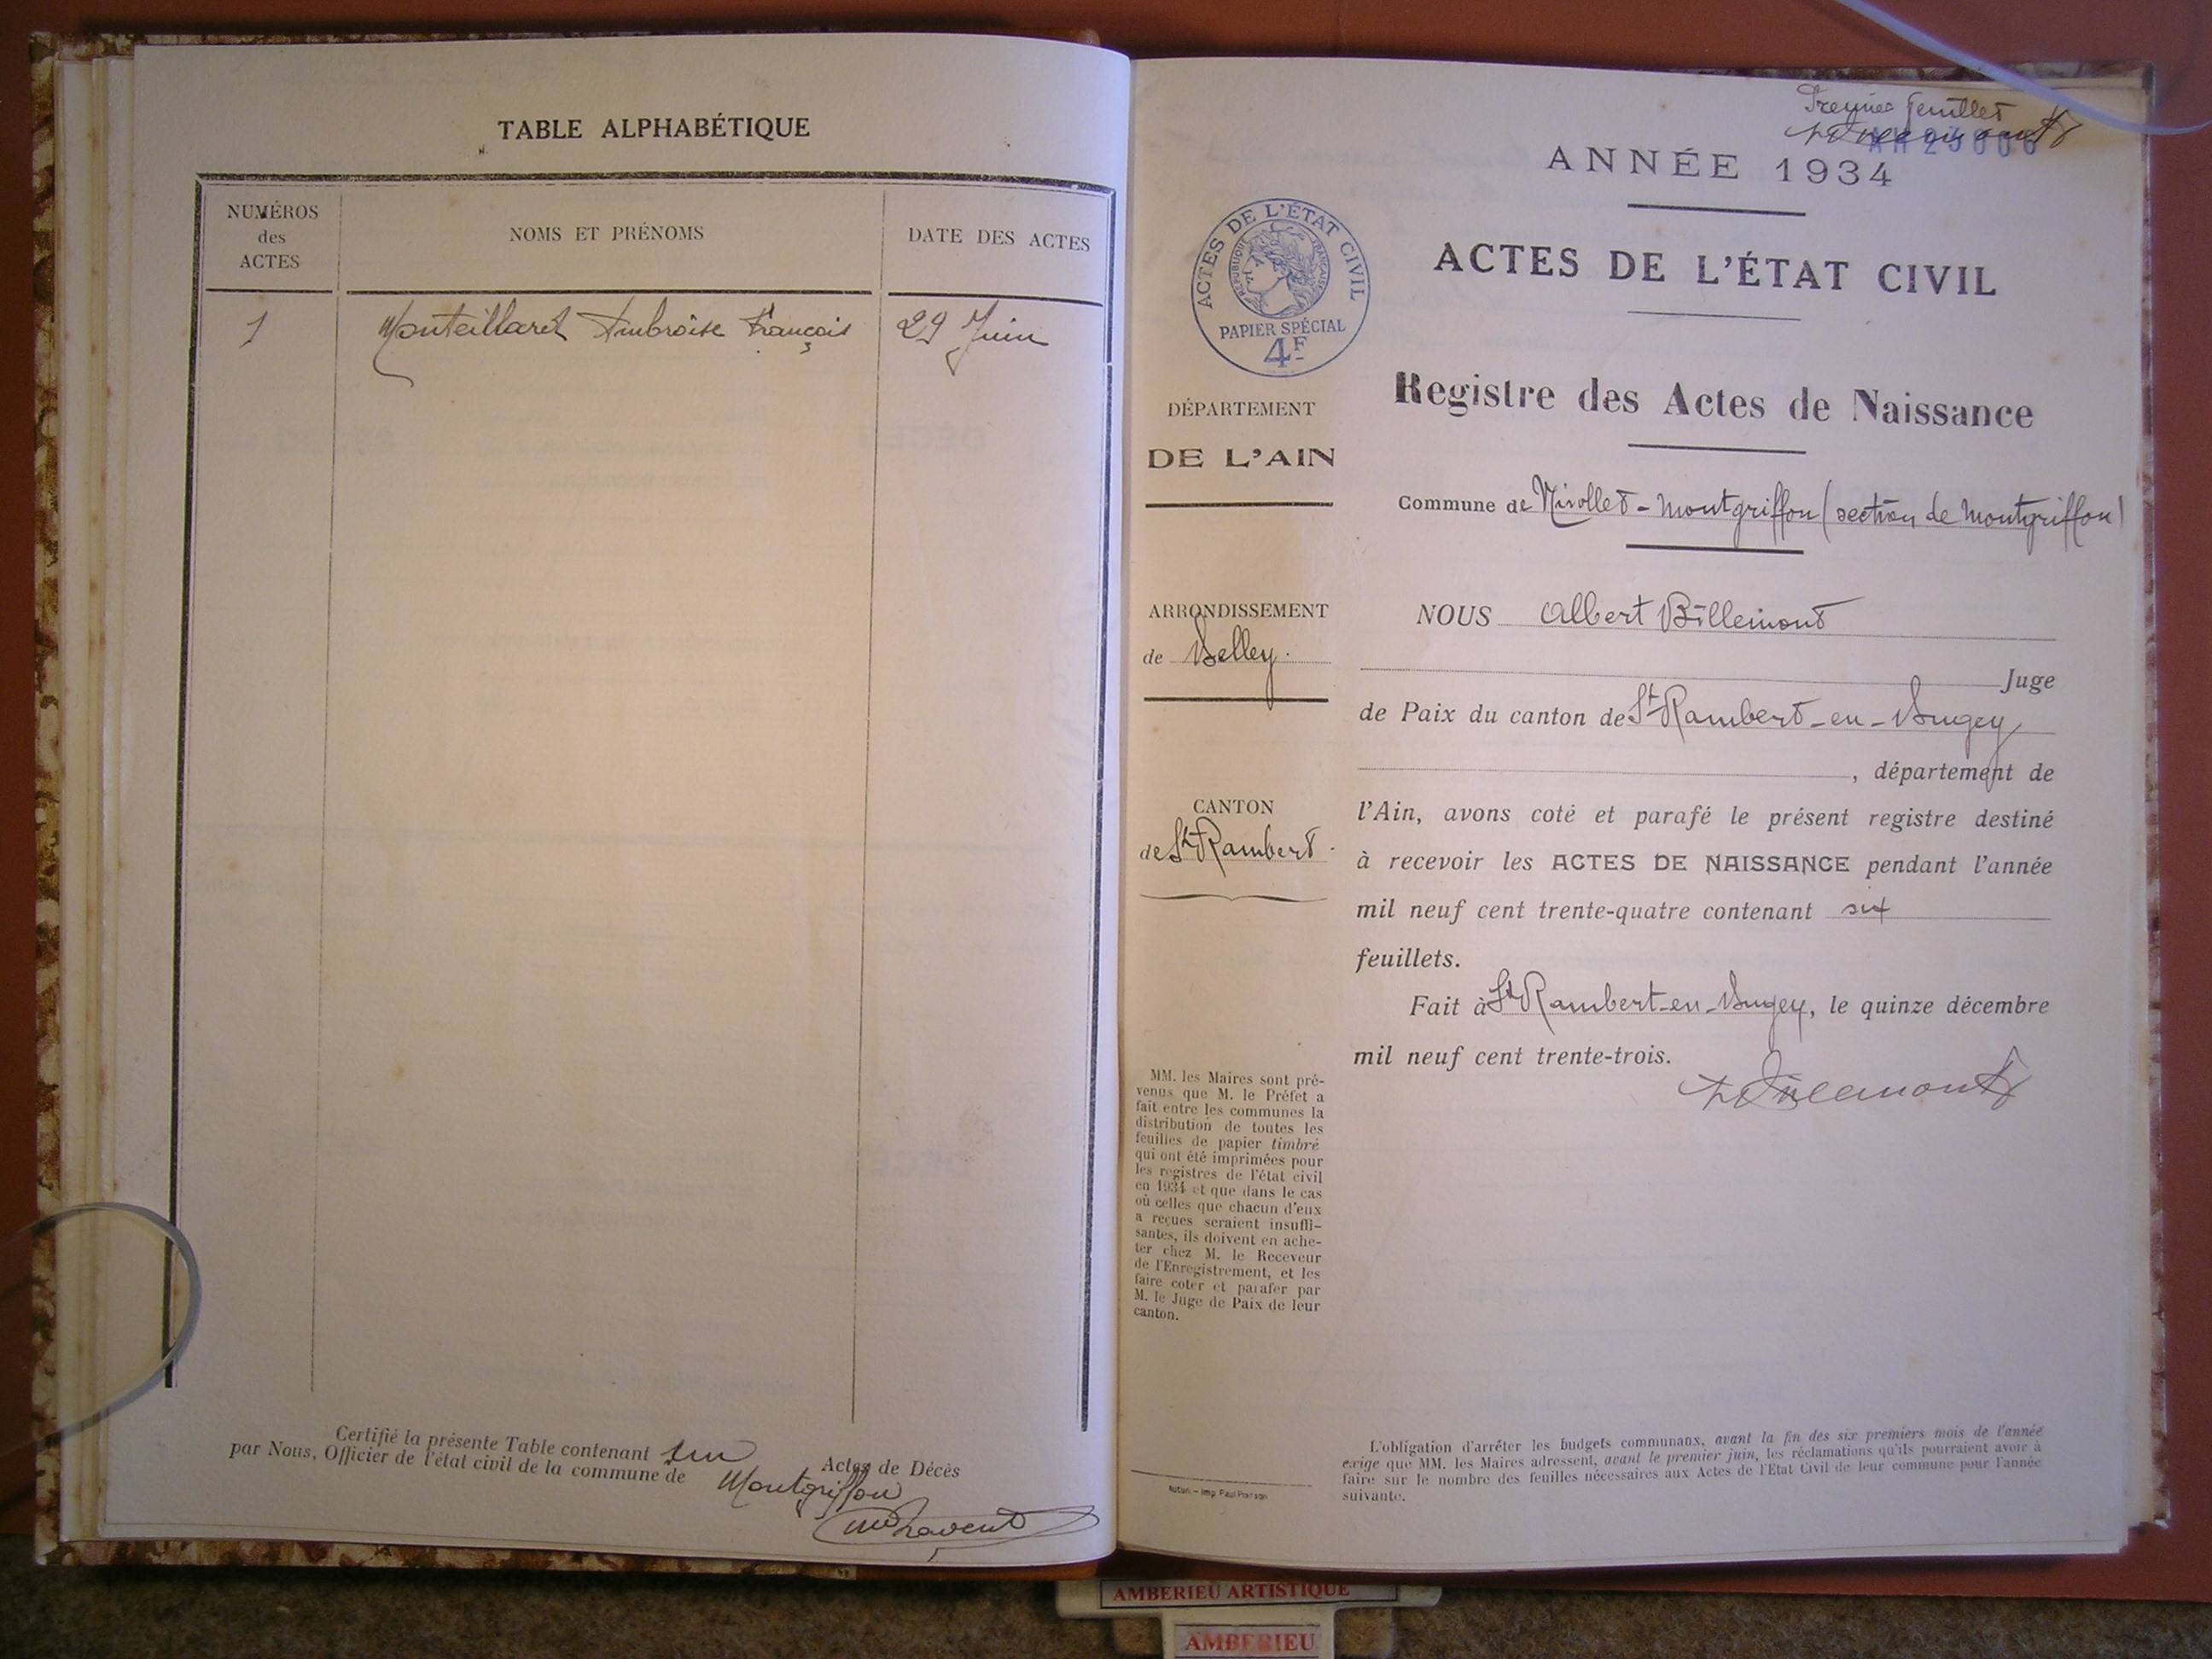 TABLE ALPHABÉTIQUE
NUMÉROS
des
ACTES
NOMS ET PRÉNOMS
DATE DES ACTES
1 Monteillard Ambroise François 29 Juin
Certifié la présente Table contenant un Actes de Décès
par Nous, Officier de l'état civil de la commune de Montgriffon
Premier feuillet
ANNÉE 1934
ACTES DE L'ÉTAT CIVIL
RÉPUBLIQUE FRANÇAISE
PAPIER SPÉCIAL
4F
ACTES DE L'ÉTAT CIVIL
Registre des Actes de Naissance
Commune de Nivollet-Montgriffon (section de Montgriffon)
DÉPARTEMENT
DE L'AIN
ARRONDISSEMENT
de Belley.
CANTON
de St Rambert.
MM. les Maires sont pré-
venus que M. le Préfet a
fait entre les communes la
distribution de toutes les
feuilles de papier timbré
qui ont été imprimées pour
les registres de l'état civil
en 1934 et que dans le cas
où celles que chacun d'eux
a reçues seraient insuffi-
santes, ils doivent en ache-
ter chez M. le Receveur
de l'Enregistrement, et les
faire coter et parafer par
M. le Juge de Paix de leur
canton.
NOUS Albert Billemont
Juge
de Paix du canton de St Rambert-en-Bugey
, département de
l'Ain, avons coté et parafé le présent registre destiné
à recevoir les ACTES DE NAISSANCE pendant l'année
mil neuf cent trente-quatre contenant six
feuillets.
Fait à St Rambert-en-Bugey, le quinze décembre
mil neuf cent trente-trois.
L'obligation d'arrêter les budgets communaux, avant la fin des six premiers mois de l'année
exige que MM. les Maires adressent, avant le premier juin, les réclamations qu'ils pourraient avoir à
faire sur le nombre des feuilles nécessaires aux Actes de l'Etat Civil de leur commune pour l'année
suivante.
AMBERIEU ARTISTIQUE
AMBERIEU